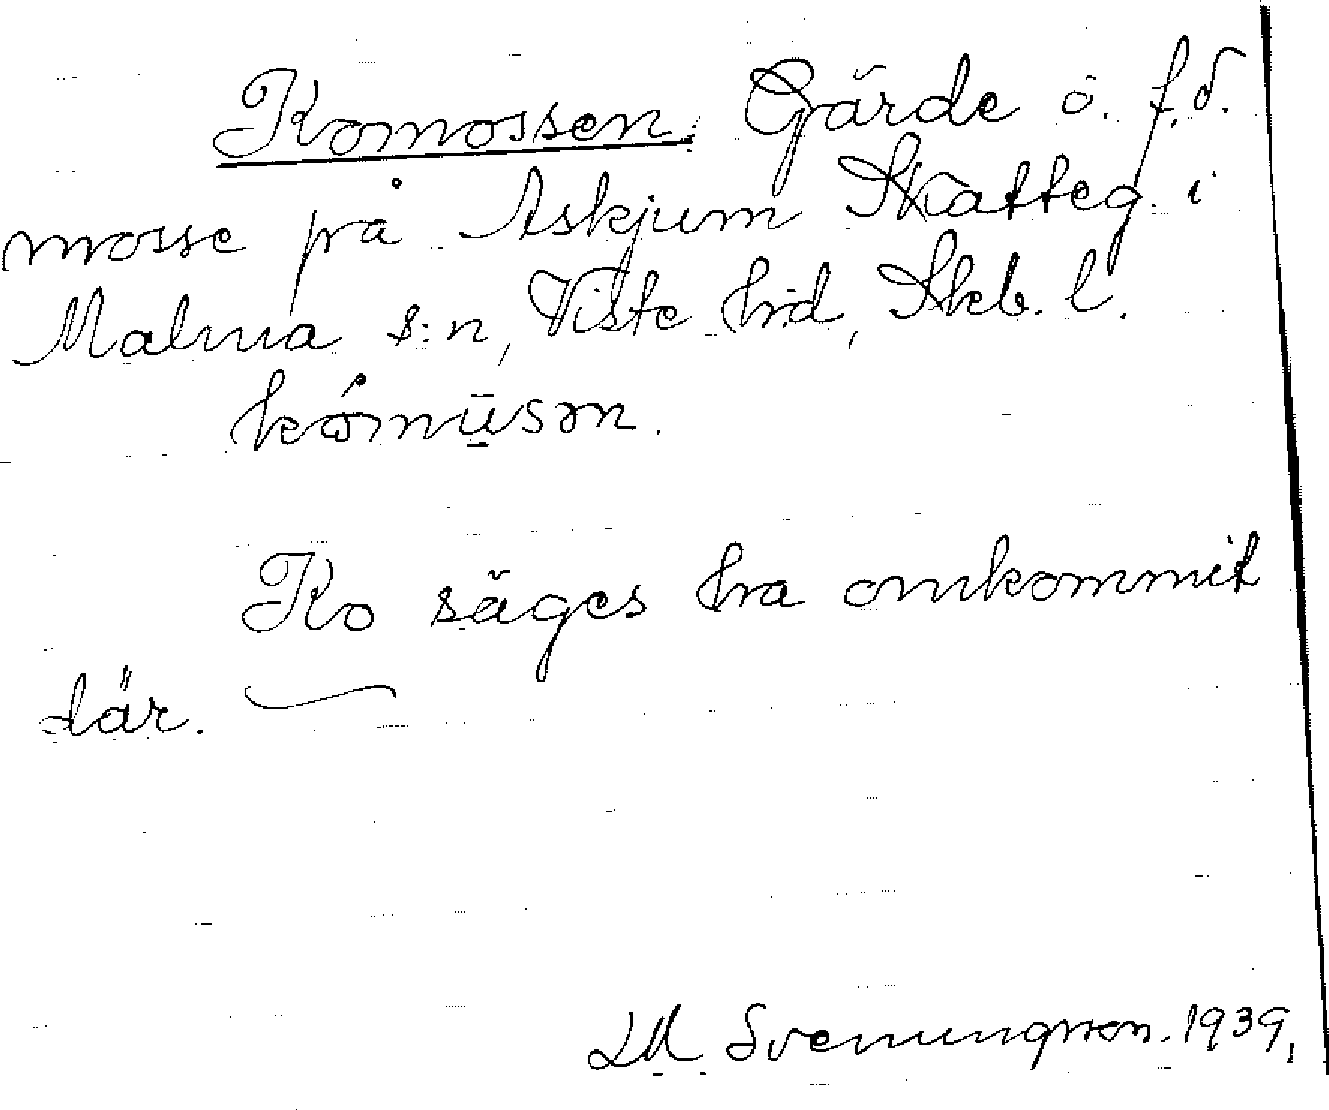 Komossen. Gärde o. f.d.
mosse på Askjum Skatteg. i
Malma s:n, Viste hrd, Skb. l.
kómūsən.
Ko säges ha omkommit
där.
LM Svenungsson. 1939.